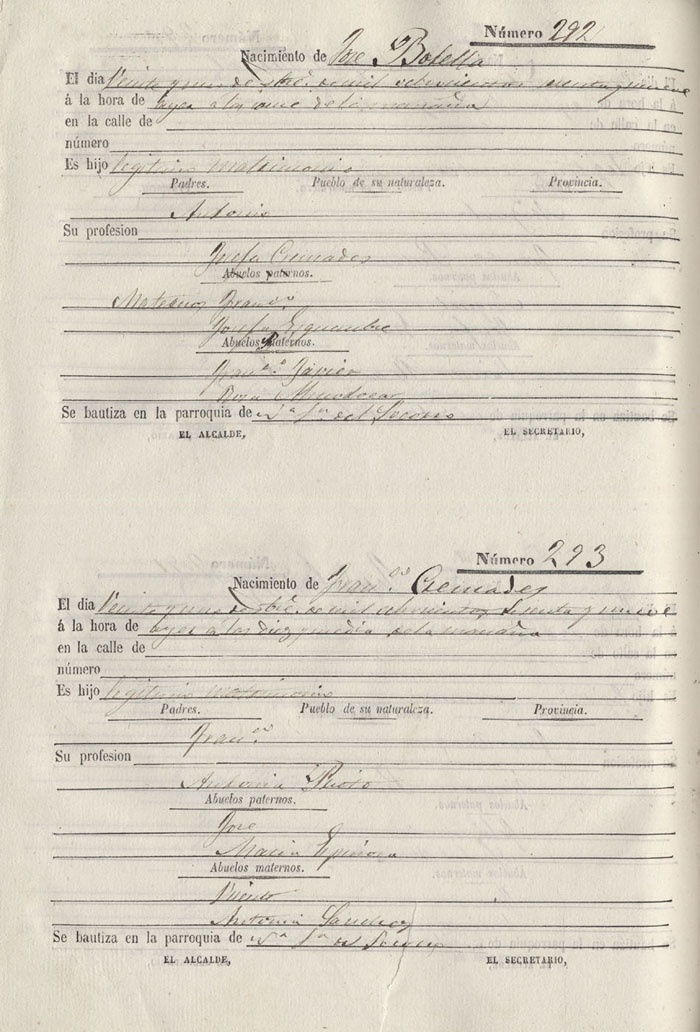 Número 292
Nacimiento de José Botella
El dia Veinte y uno de mil ochocientos sesenta y nueve
á la hora de ayer a las once de la mañana
en la calle de
número
Es hijo legitimo matrimonio
Padres. Pueblo de su naturaleza. Provincia.
Antonio
Su profesion
Josefa Cremades
Abuelos paternos.
Maternos Franco
Josefa
Abuelos Paternos.
Javier
Rosa
Se bautiza en la parroquia de del Socorro
EL ALCALDE, EL SECRETARIO,
Número 293
Nacimiento de Franco Cremades
El dia Veinte y uno de mil ochocientos sesenta y nueve
á la hora de ayer a las diez y media de la mañana
en la calle de
número
Es hijo legitimo matrimonio
Padres. Pueblo de su naturaleza. Provincia.
Franco
Su profesion
Antonia
Abuelos paternos.
José
Maria Espinosa
Abuelos maternos.
Vicente
Antonia Sanchez
Se bautiza en la parroquia de del Socorro
EL ALCALDE, EL SECRETARIO,